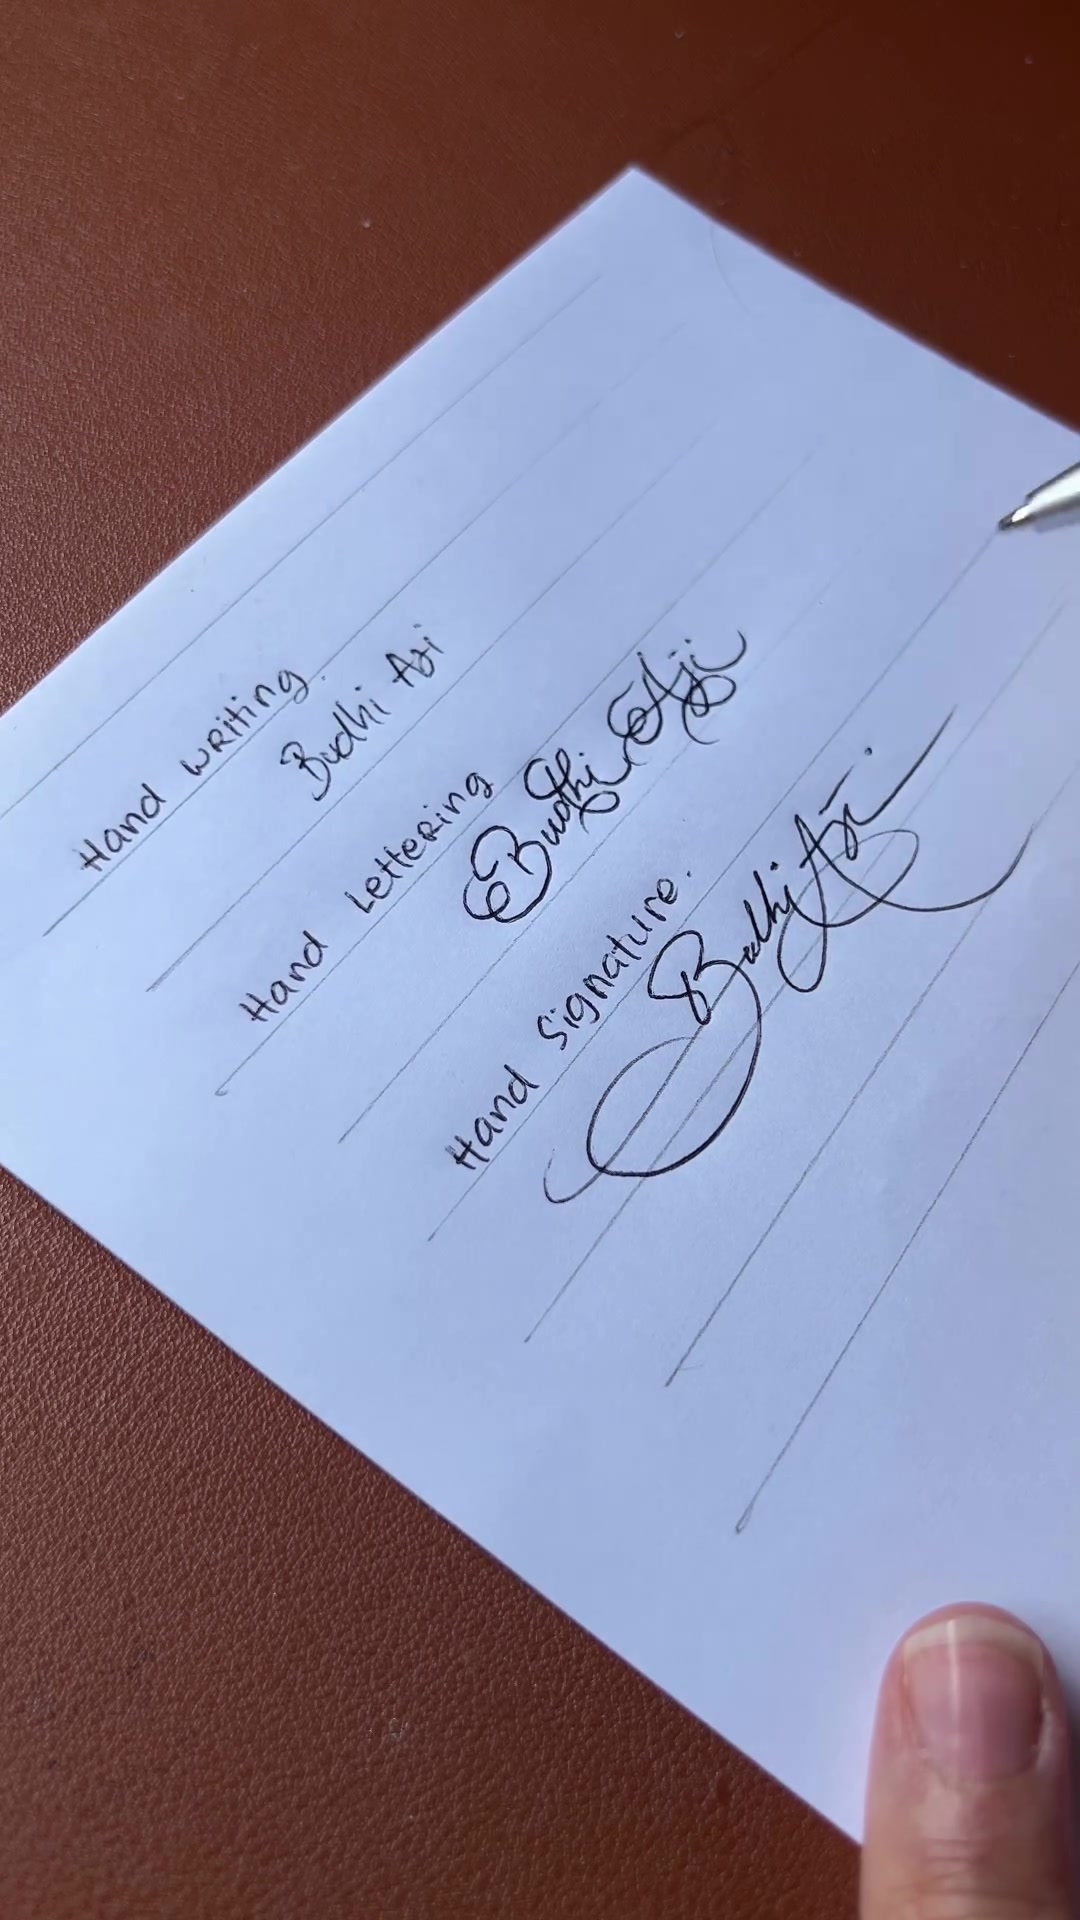 Hand writing.
Budhi Aji
Hand Lettering
Budhi Aji
Hand Signature.
Budhi Aji